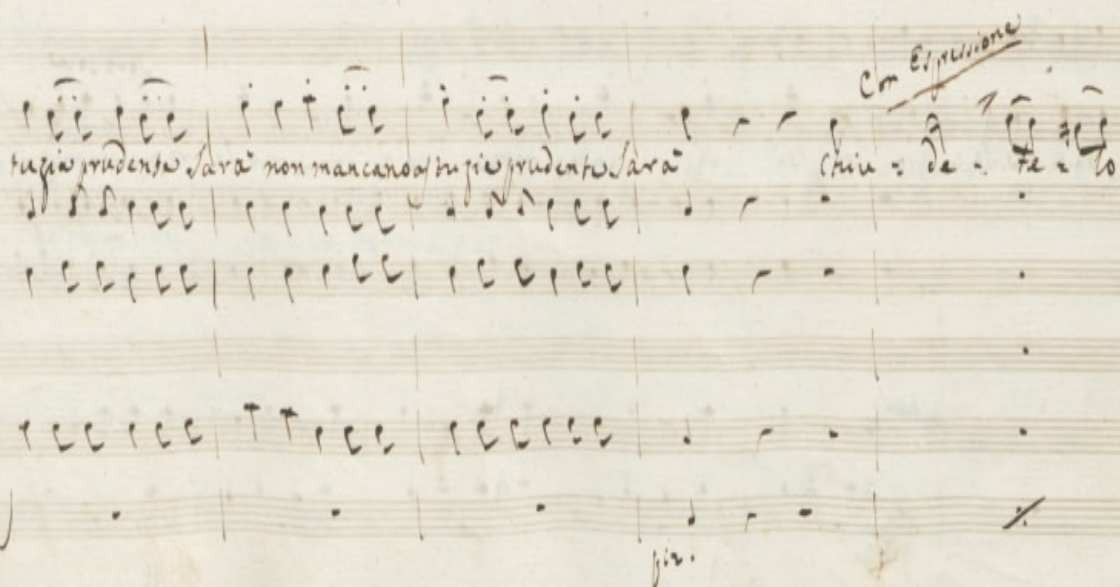 Con Espressione
tuzia prudente Sarà non mancano astuzia prudente Sarà Chiu - de - te - lo